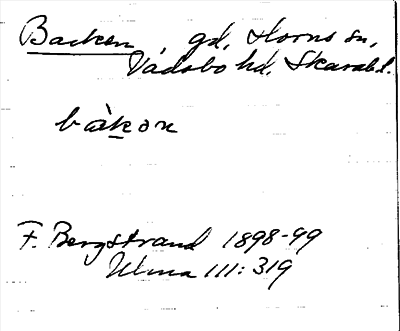 Backen, gd, Horns sn,
Vadsbo hd, Skarab.l.
bàkɔn
F. Bergstrand 1898-99
Ulma 111:319